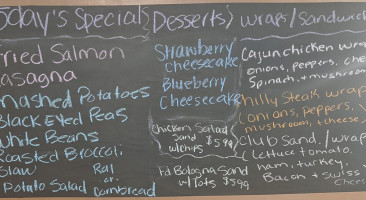 oday's Specials
ried Salmon
asagna
mashed Potatoes
Black Eyed Peas
White Beans
Roasted Broccoli
Slaw Roll
or
Potato Salad Cornbread
Desserts
Strawberry
Cheesecake
Blueberry
Cheesecake
Chicken Salad
Sand $5.99
w/chips
Fd Bologna Sand
w/ Tots $5.99
wraps/Sandwich
Cajun chicken wrap
onions, peppers, che
Spinach + mushroom
hilly Steak wrap
(onions, peppers,
mushroom, + cheese
Club Sand. / wrap
(Lettuce + tomato,
ham, + turkey,
Bacon + Swiss
Chees